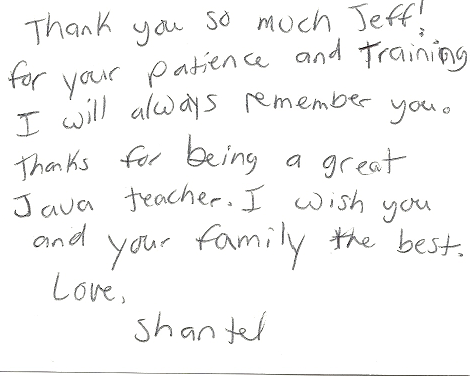 Thank you so much Jeff!
for your patience and training
I will always remember you.
Thanks for being a great
Java teacher. I wish you
and your family the best.
Love,
Shantel